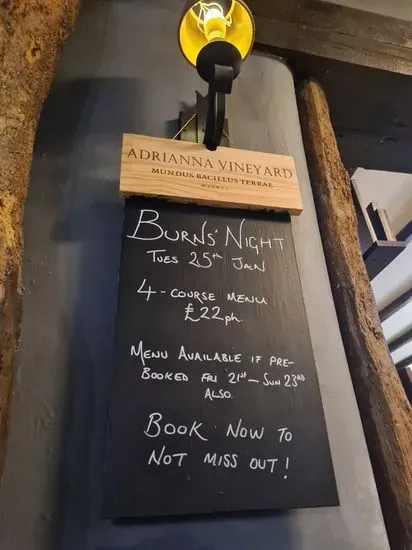 ADRIANNA VINEYARD
MUNDUS BACILLUS TERRAE
BURNS' NIGHT
TUES 25TH JAN
4-COURSE MENU
£22ph.
MENU AVAILABLE IF PRE-
BOOKED FRI 21ST - SUN 23RD
ALSO.
BOOK NOW TO
NOT MISS OUT!